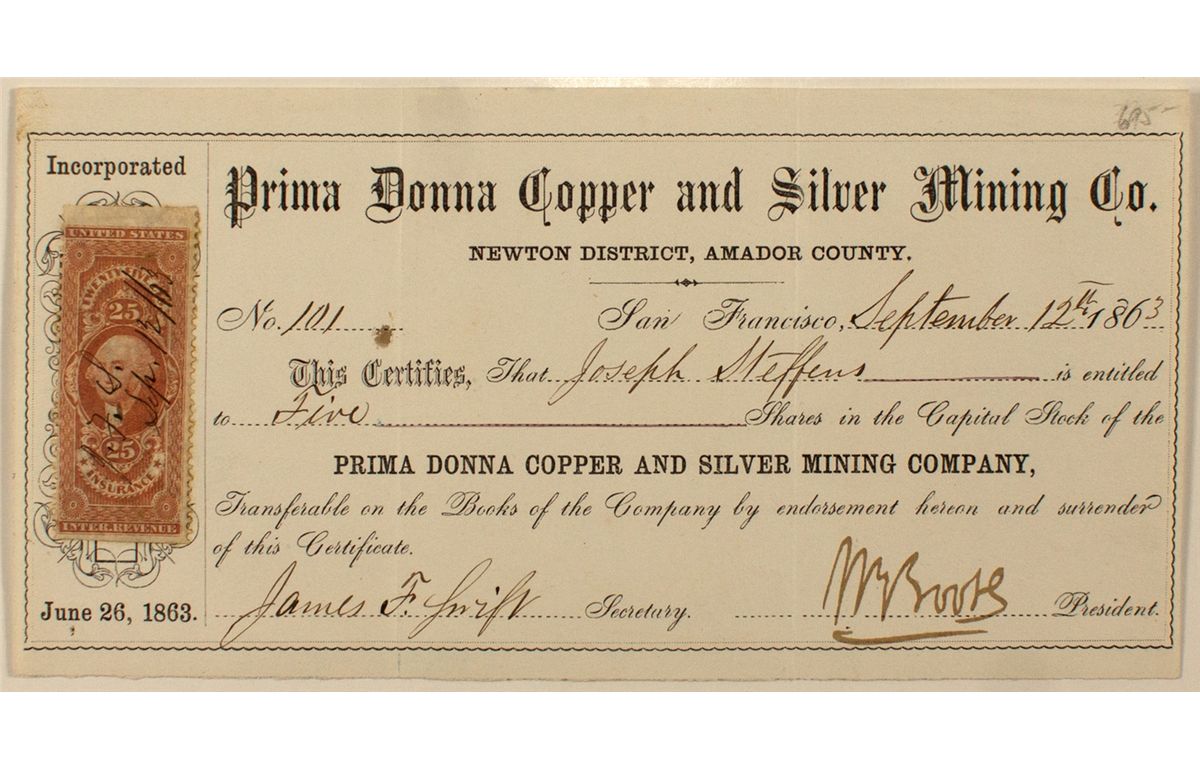 695-
Incorporated
Prima Donna Copper and Silver Mining Co.
NEWTON DISTRICT, AMADOR COUNTY.
No. 101 San Francisco, September 12th 1863
This Certifies, That Joseph Steffens is entitled
to Five Shares in the Capital Stock of the
PRIMA DONNA COPPER AND SILVER MINING COMPANY,
Transferable on the Books of the Company by endorsement hereon and surrender
of this Certificate.
James F. Swift Secretary. President.
June 26, 1863.
UNITED STATES
25
J. F. S.
Sep. 12/63
25
INSURANCE
INTER. REVENUE